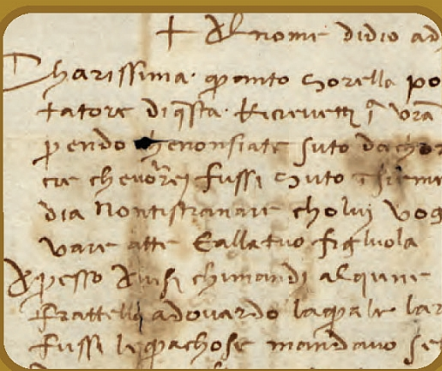 + Al nome didio ad
Charissima quanto sorella po
tatore diqsta Ricievettj ī vrā
pendo chenonsiate suto dachor
cie chevorej fussi suto
dia Nontistranare choluj vog
vare atte Eallatuo figluola
Apresso Avisi chimandi alqune
frattello adovardo laquale lar
fussi lequachose mandavo se